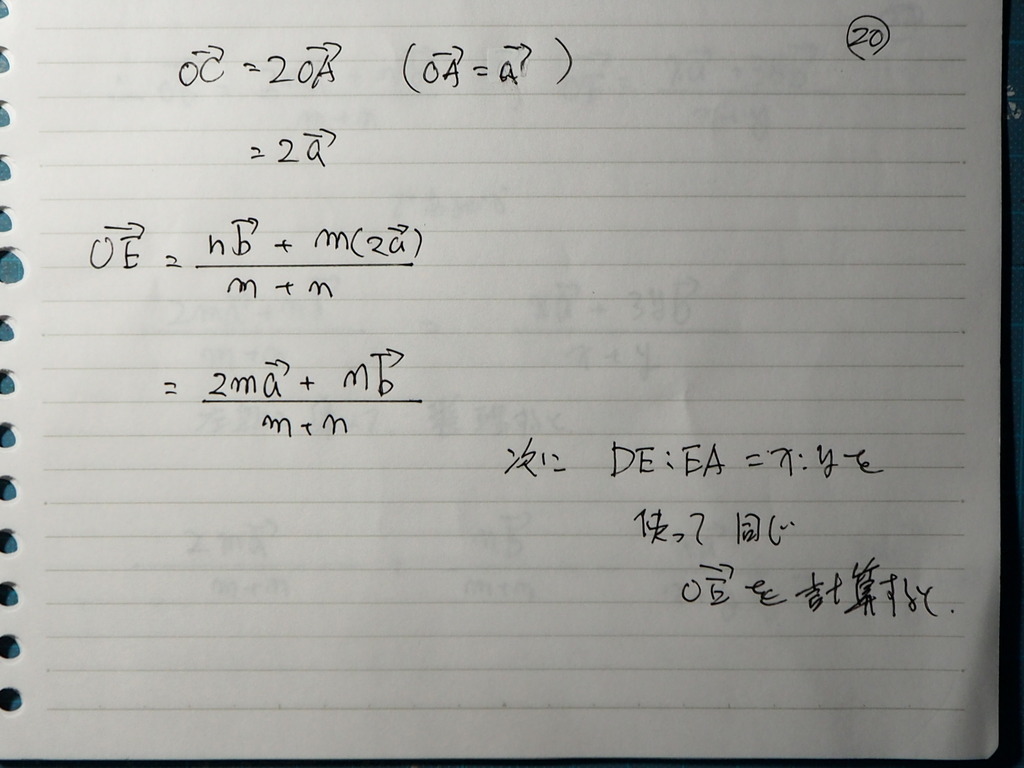 ⑳
OC→ = 2OA→ (OA→ = a→)
= 2a→
OE→ = (nb→ + m(2a→)) / (m + n)
= (2ma→ + nb→) / (m + n)
次に DE:EA = x:yを
使って 同じ
OE→を計算すると.